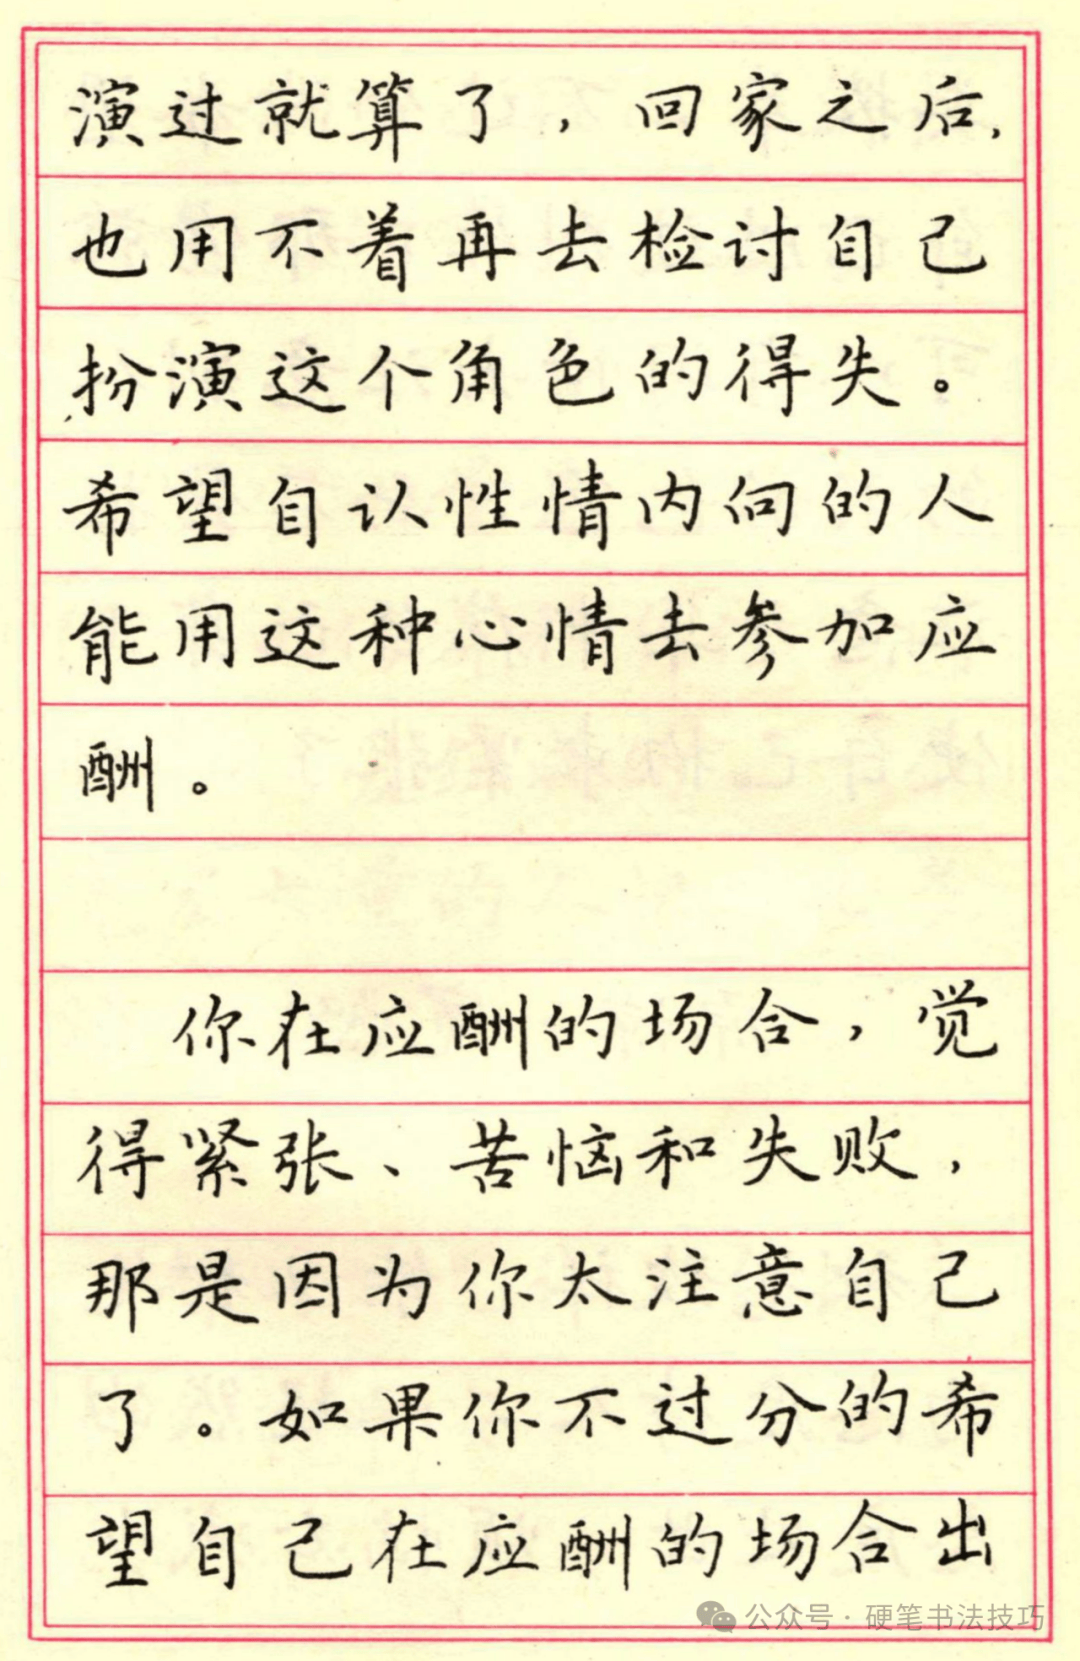 演过就算了，回家之后，
也用不着再去检讨自己
扮演这个角色的得失。
希望自认性情内向的人
能用这种心情去参加应
酬。
你在应酬的场合，觉
得紧张、苦恼和失败，
那是因为你太注意自己
了。如果你不过分的希
望自己在应酬的场合出
公众号·硬笔书法技巧